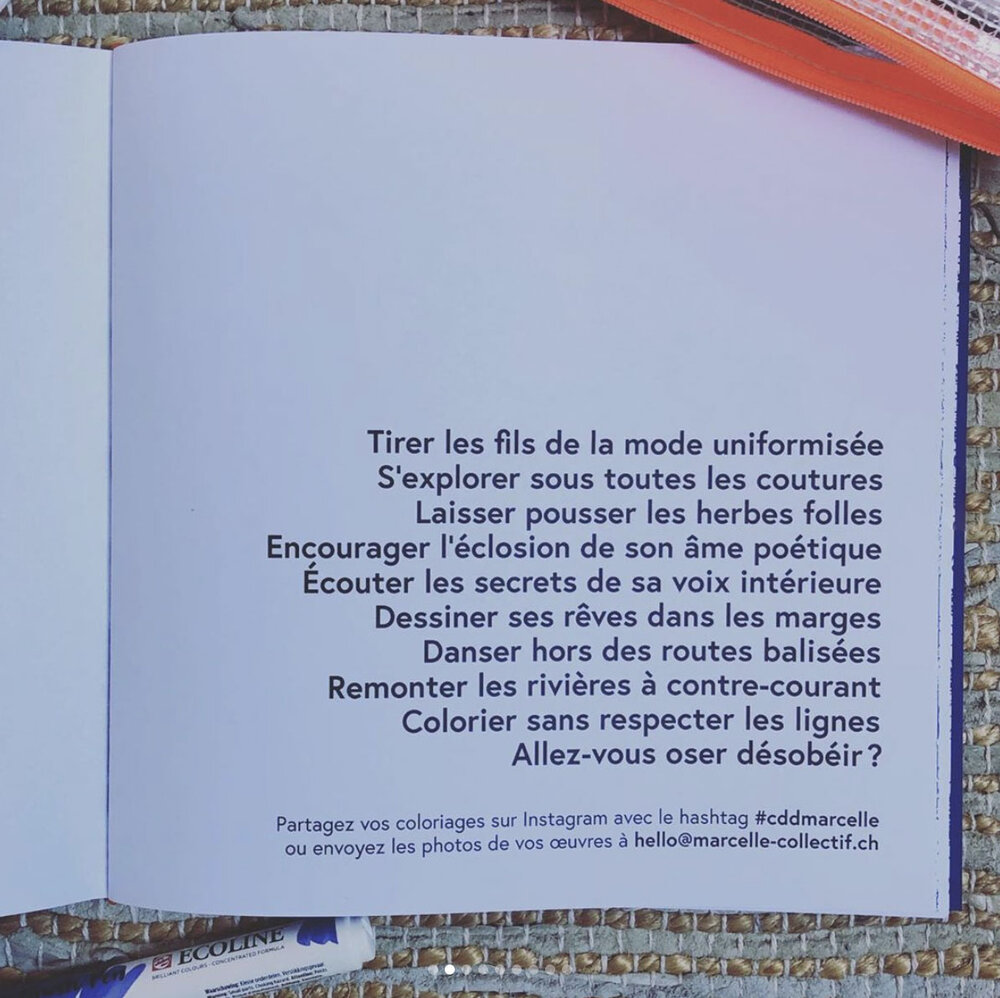 Tirer les fils de la mode uniformisée
S'explorer sous toutes les coutures
Laisser pousser les herbes folles
Encourager l'éclosion de son âme poétique
Écouter les secrets de sa voix intérieure
Dessiner ses rêves dans les marges
Danser hors des routes balisées
Remonter les rivières à contre-courant
Colorier sans respecter les lignes
Allez-vous oser désobéir ?
Partagez vos coloriages sur Instagram avec le hashtag #cddmarcelle
ou envoyez les photos de vos œuvres à hello@marcelle-collectif.ch
ECOLINE
BRILLIANT COLOURS - CONCENTRATED FORMULA